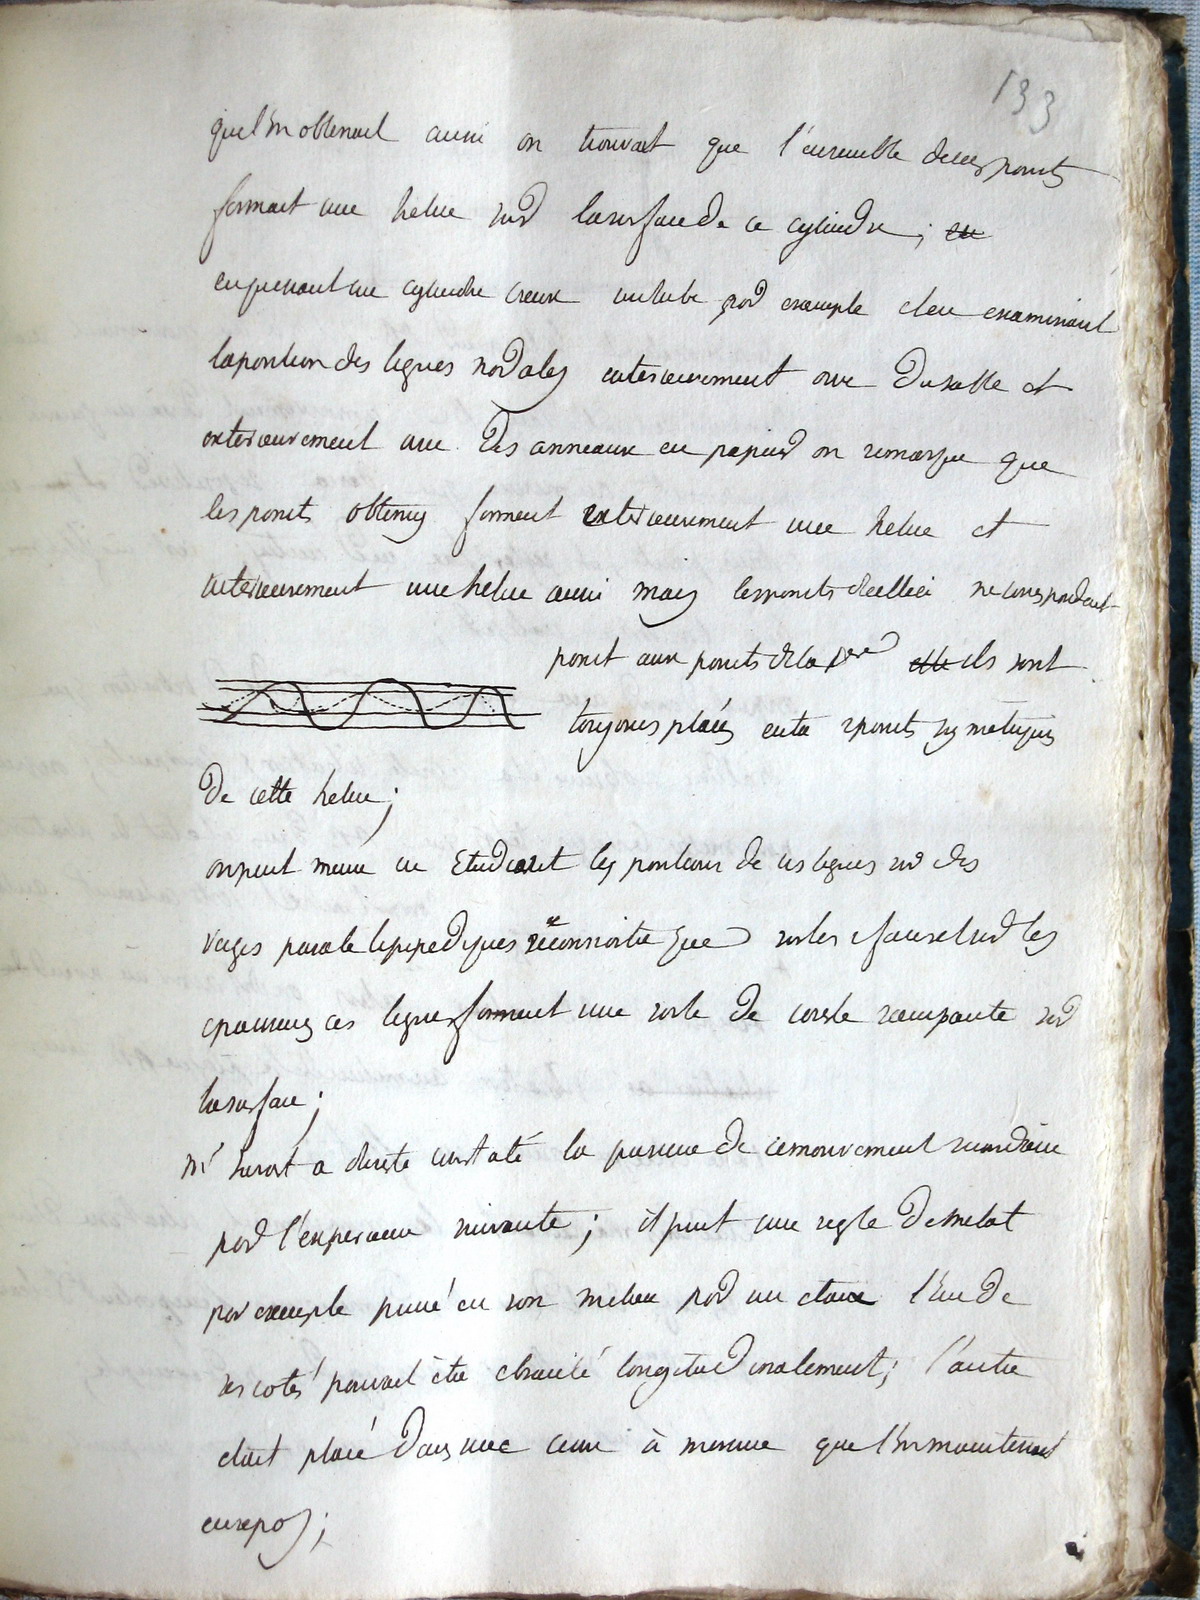 133
que l'on obtenait aussi on trouvait que l'ensemble de ces points
formait une helice sur la surface de ce cylindre ; en
en prenant un cylindre creux un tube par exemple et en examinant
la position des lignes nodales interieurement avec du sable et
exterieurement avec des anneaux en papier on remarque que
les points obtenus forment exterieurement une helice et
interieurement une helice aussi mais les points de celle ci ne correspondent
point aux points de la 1ere elle ils sont
toujours placés entre 2 points symetriques
de cette helice ;
on peut meme en etudiant les positions de ces lignes sur des
verges parallelepipediques reconnoitre que sur les faces et sur les
epaisseurs ces lignes forment une sorte de courbe rampante sur
la surface ;
mr Savart a dureste constaté la presence de ce mouvement secondaire
par l'experience suivante ; il prit une regle de metal
par exemple pincé en son milieu par un etau l'un de
ses cotés pouvait être ebranlé longitudinalement ; l'autre
etait placé dans une cuve à mercure que l'on maintenait
en repos ;